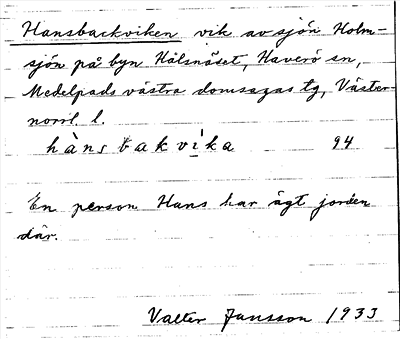 Hansbackviken vik av sjön Holm-
sjön på byn Hålsnäset, Haverö sn,
Medelpads västra domsagas tg, Väster-
norrl. l.
hàns bakvika 94
En person Hans har ägt jorden
där.
Valter Jansson 1933